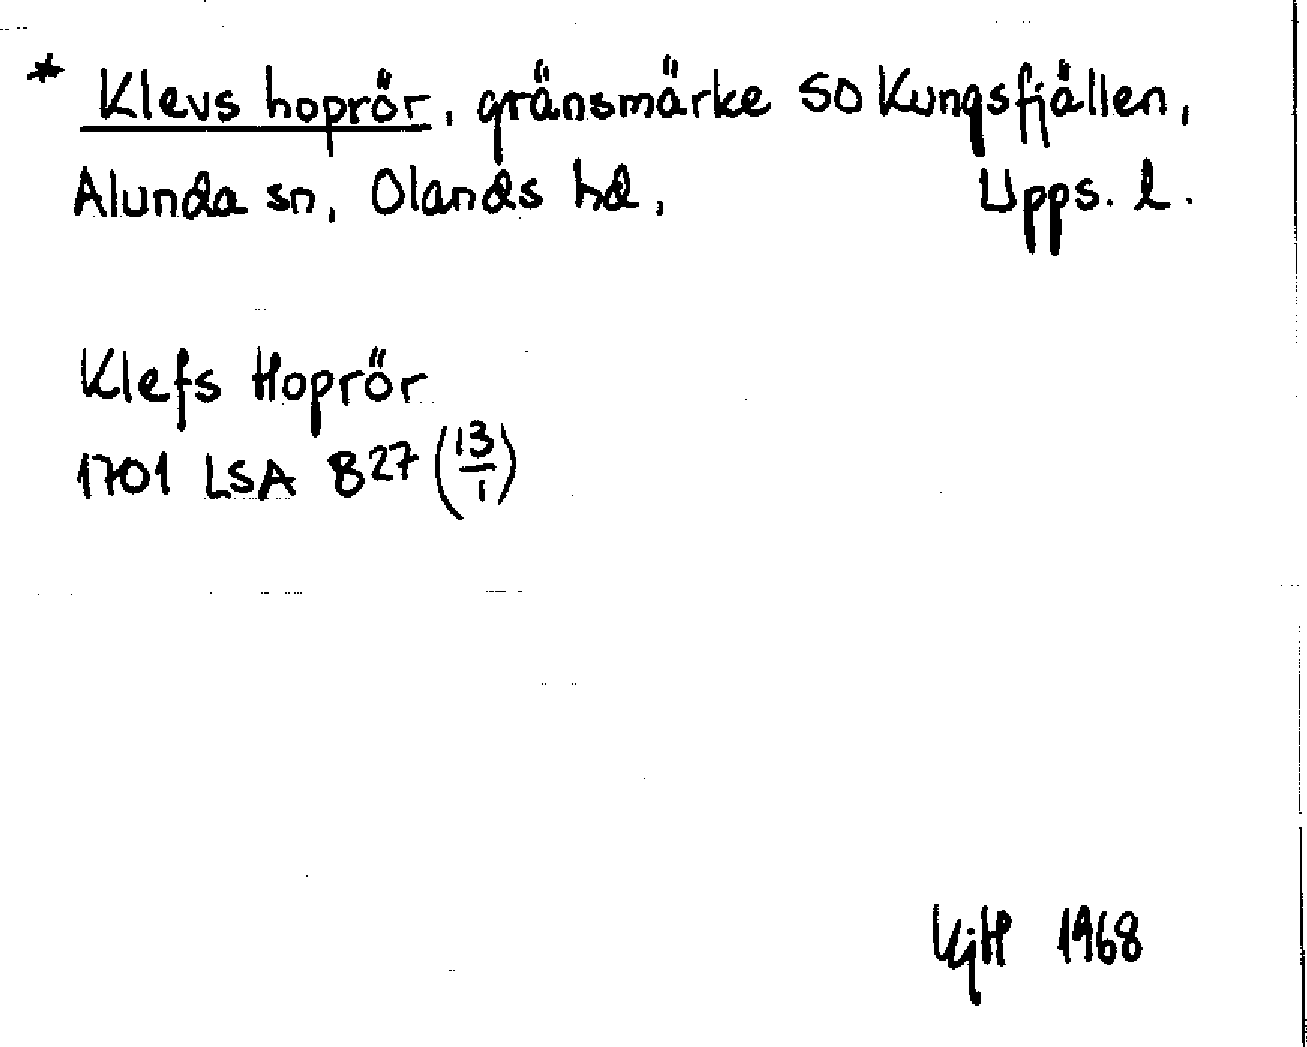 * Klevs hoprör, gränsmärke SO Kungsfjällen,
Alunda sn, Olands hd, Upps. l.
Klefs Hoprör
1701 LSA B27 (13/1)
KjH 1968